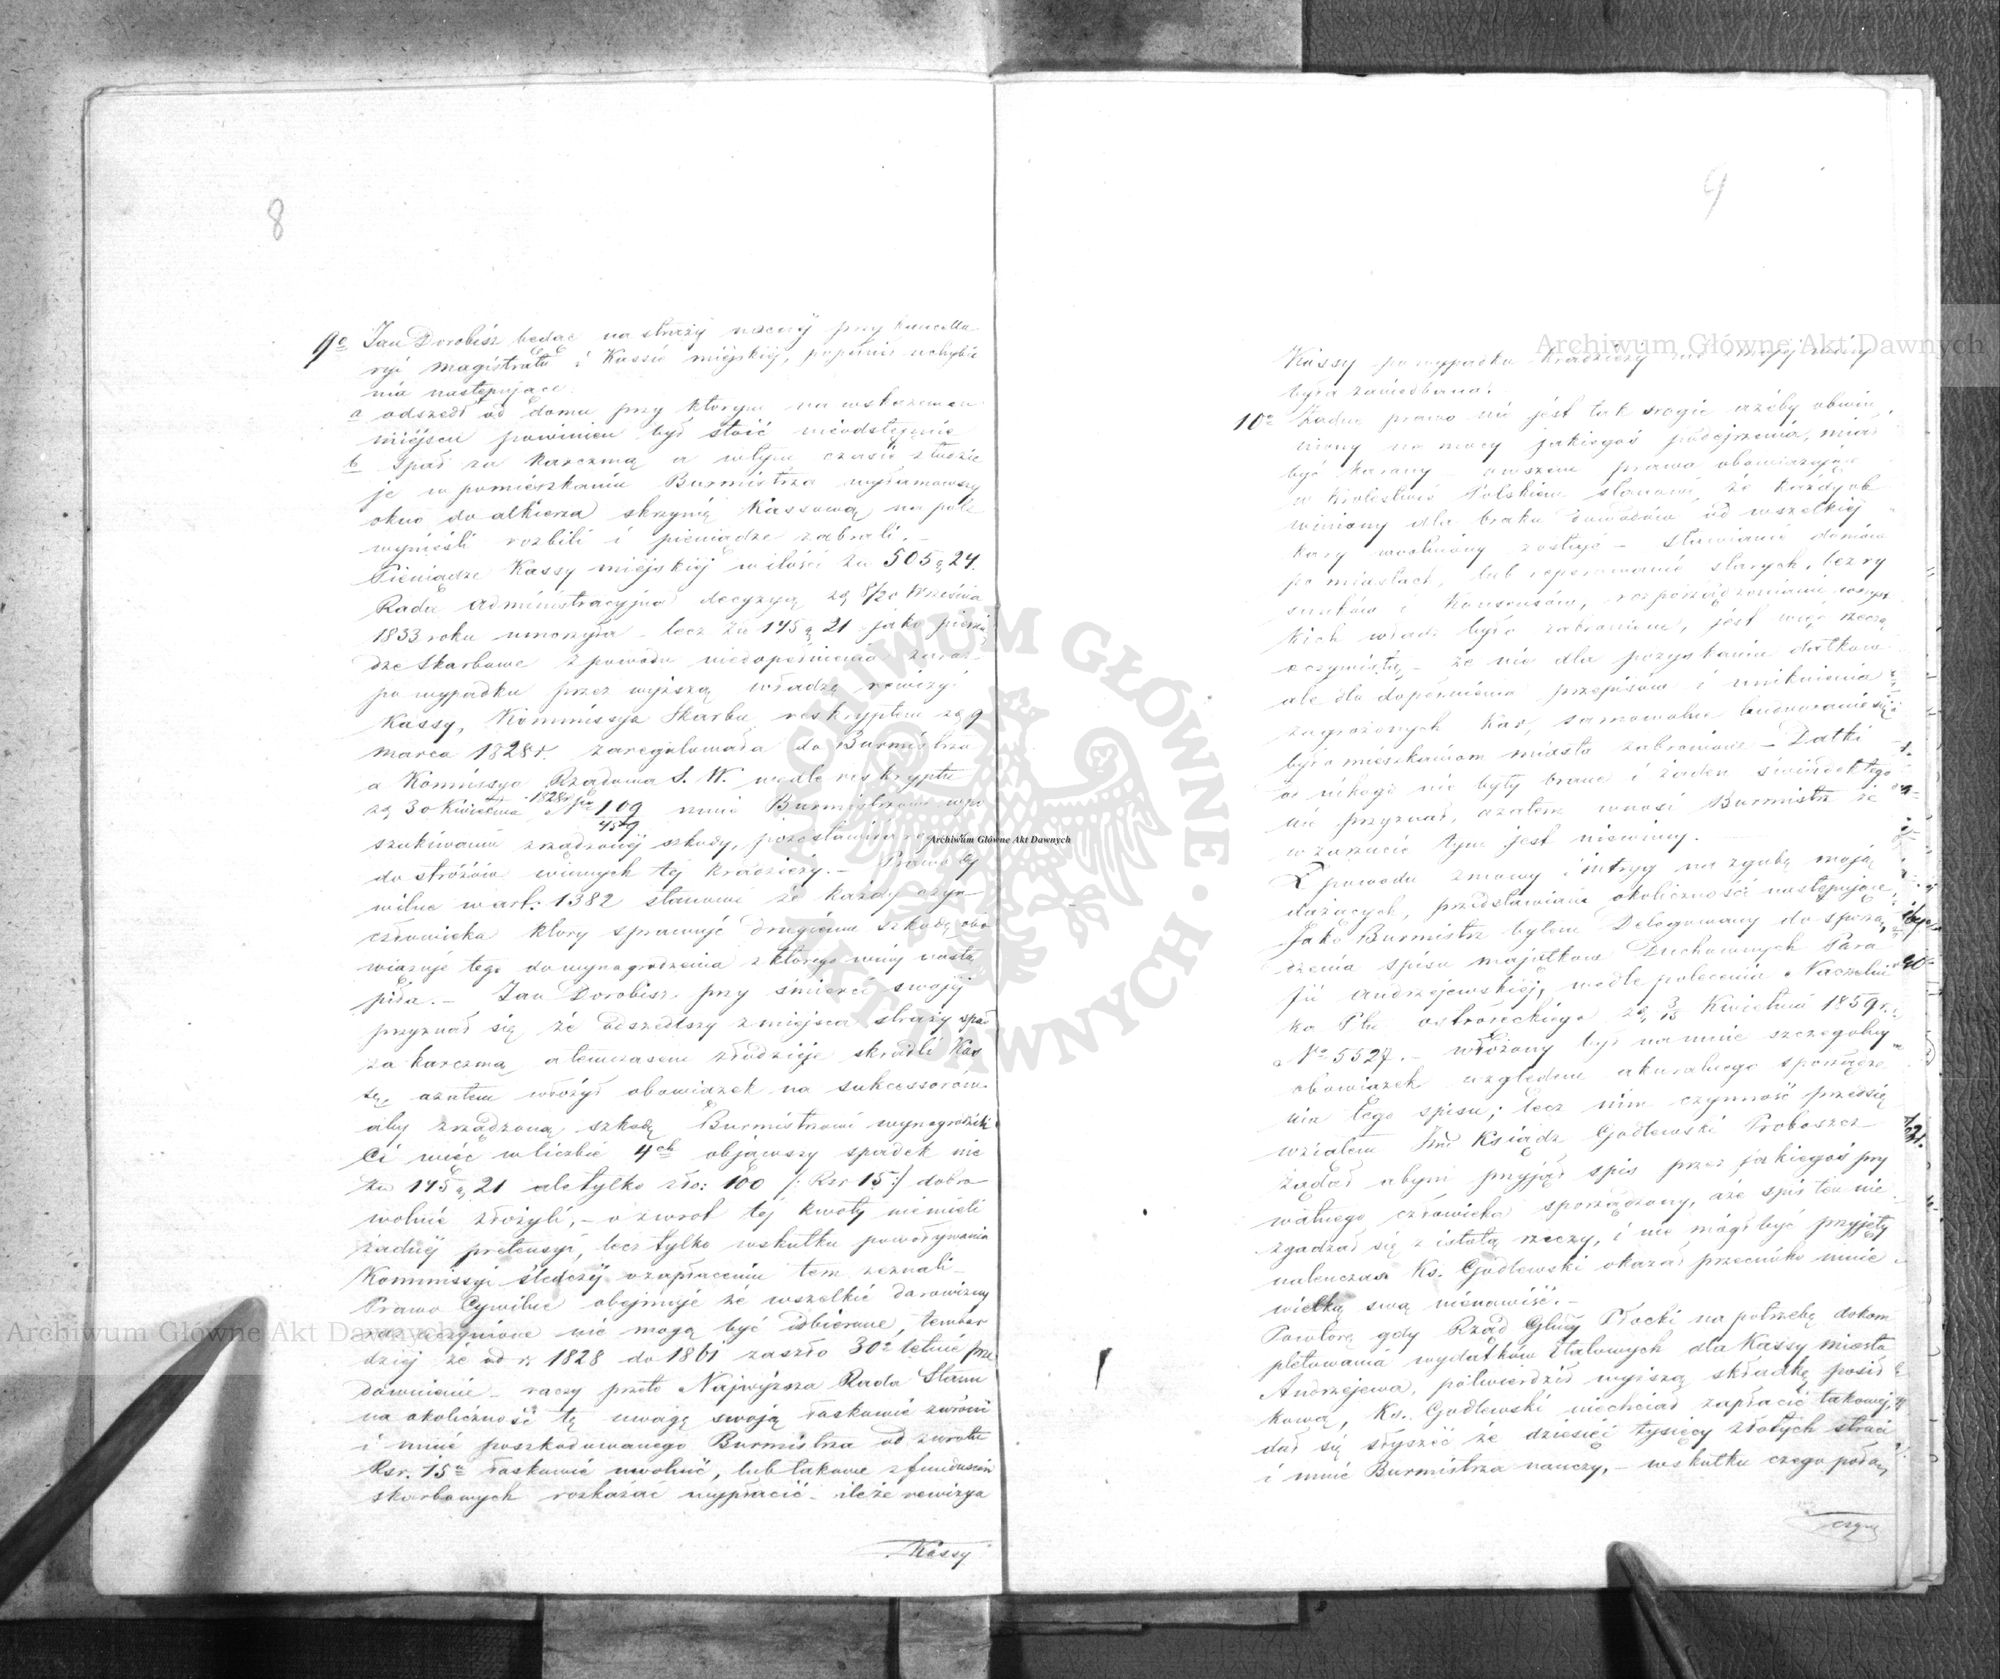 8
9o Jan Dorobisz będąc na straży nocnéj przy kancella-
ryi magistratu i Kassie miejskiéj, popełnił uchybie
nia następujące:
a odszedł od domu przy którym na wskazanem
miejscu powinien był stóić nieodstępnie
b Spał za karczmą a w tym czasie złodzie
je w pomieszkaniu Burmistrza wyłamawszy
okno do alkierza skrzynię Kassową na pole
wynieśli rozbili i pieniądze zabrali. –
Pieniądze Kassy miejskiéj w ilości Zł 505 g 24.
Rada Administracyjna decyzyą z d. 8/20 Września
1833 roku umorzyła – lecz Zł 145 g 21 jako pienią
dze Skarbowe z powodu niedopełnienia zaraz
po wypadku przez wyższą władzę rewizyi
Kassy, Kommissya Skarbu reskryptem z d. 9
marca 1828 r. zaregulowała do Burmistrza
a Kommissya Rządowa S. W. wedle reskryptu
z d. 30 Kwietnia 1828 r No 109/4549 mnie Burmistrzowi w po
szukiwaniu zrządzonéj szkody, pozostawiła
do stróżów winnych téj kradzieży. – Prawo Cy
wilne w art: 1382 stanowi że każdy czyn
człowieka który sprawuje drugiemu szkodę obo
wiązuje tego do wynagrodzenia z którego winy nastą
piła. – Jan Dorobisz przy śmierci swojéj
przyznał się że odszedłszy z miejsca straży spał
za karczmą a temczasem złodzieje skradli Kas
sę, azatem włożył obowiązek na sukcessorów
aby zrządzoną szkodę Burmistrzowi wynagrodzili
Ci więc w liczbie 4ch objąwszy spadek nie
Zł 145 g 21 ale tylko złp: 100 /: Rsr 15 :/ dobro-
wolnie złożyli, – o zwrot téj kwoty niemieli
żadnéj pretensyi, lecz tylko wskutku powoływania
Kommissyi śledczéj o zapłaceniu tem zeznali –
Prawo Cywilne obejmuje że wszelkie darowizny
raz uczynione nie mogą być odbierane, tembar
dziéj że od r. 1828 do 1861 zaszło 30o letnie prze
dawnienie – raczy przeto Najwyższa Rada Stanu
na okoliczność tę uwagę swoją łaskawie zwrócić
i mnie poszkodowanego Burmistrza od zwrotu
Rsr. 15 łaskawie uwolnić, lub takowe z funduszów
skarbowych rozkazać wypłacić – ileże rewizya
Kassy
9
Kassy po wypadku kradzieży nie z mojéj winy
była zaniedbana.
10o Żadne prawo nie jést tak srogie ażeby obwi
niony na mocy jakiegoś podejrzenia, miał
być karany – owszem prawa obowiązujące
w Królestwie Polskiem stanowi, że każdy ob
winiony dla braku dowodów od wszelkiéj
kary uwolniony zostaje – stawianie domów
po miastach, lub reperowanie starych, bez ry
sunków i Konsensów, rozporządzeniami wszyst
kich władz było zabronione, jést więc rzeczą
oczywistą – że nie dla pozyskania datków
ale dla dopełnienia przepisów i uniknienia
zagrożonych kar, samowolne budowanie się
było mieszkańcom miasta zabronione – Datki
od nikogo nie były brane i żaden świadek tego
nie przyznał, azatem wnosi Burmistrz że
w zarzucie tym jest niewinny.
Z powodu zmowy i intryg na zgubę moją
dążących, przedstawiam okoliczności następujące
Jako Burmistrz byłem Delegowany do sporzą
dzenia spisu majątków Duchownych Para
fii Andrzejewskiéj, wedle polecenia Naczelni
ka Ptu Ostrołęckiego z d. 3/15 Kwietnia 1859 r.
No 5527. – włożony był na mnie szczególny
obowiązek względem akuratnego sporządze
nia tego spisu; lecz nim czynność przedsię
wziąłem Jmć Ksiądz Godlewski Proboszcz
żądał abym przyjął spis przez jakiegoś pry
watnego człowieka sporządzony, a że spis ten nie
zgadzał się z istotą rzeczy, i nie mógł być przyjęty
natenczas Ks. Godlewski okazał przeciwko mnie
wielką swą nienawiść. –
Powtóre gdy Rząd Glny Płocki na potrzebę skom
pletowania wydatków Etatowych dla Kassy miasta
Andrzejewa, potwierdził wyższą składkę posił
kową, Ks. Godlewski niechciał zapłacić takowéj,
dał się słyszéć że dziesięć tysięcy złotych straci
i mnie Burmistrza nauczy, – wskutku czego
czyne